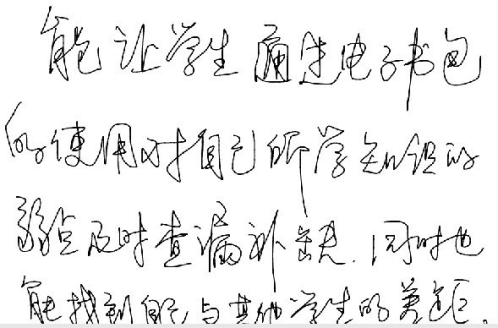 能让学生通过电子书包
的使用对自己所学知识的
弱点及时查漏补缺.同时也
能找到自己与其他学生的差距。